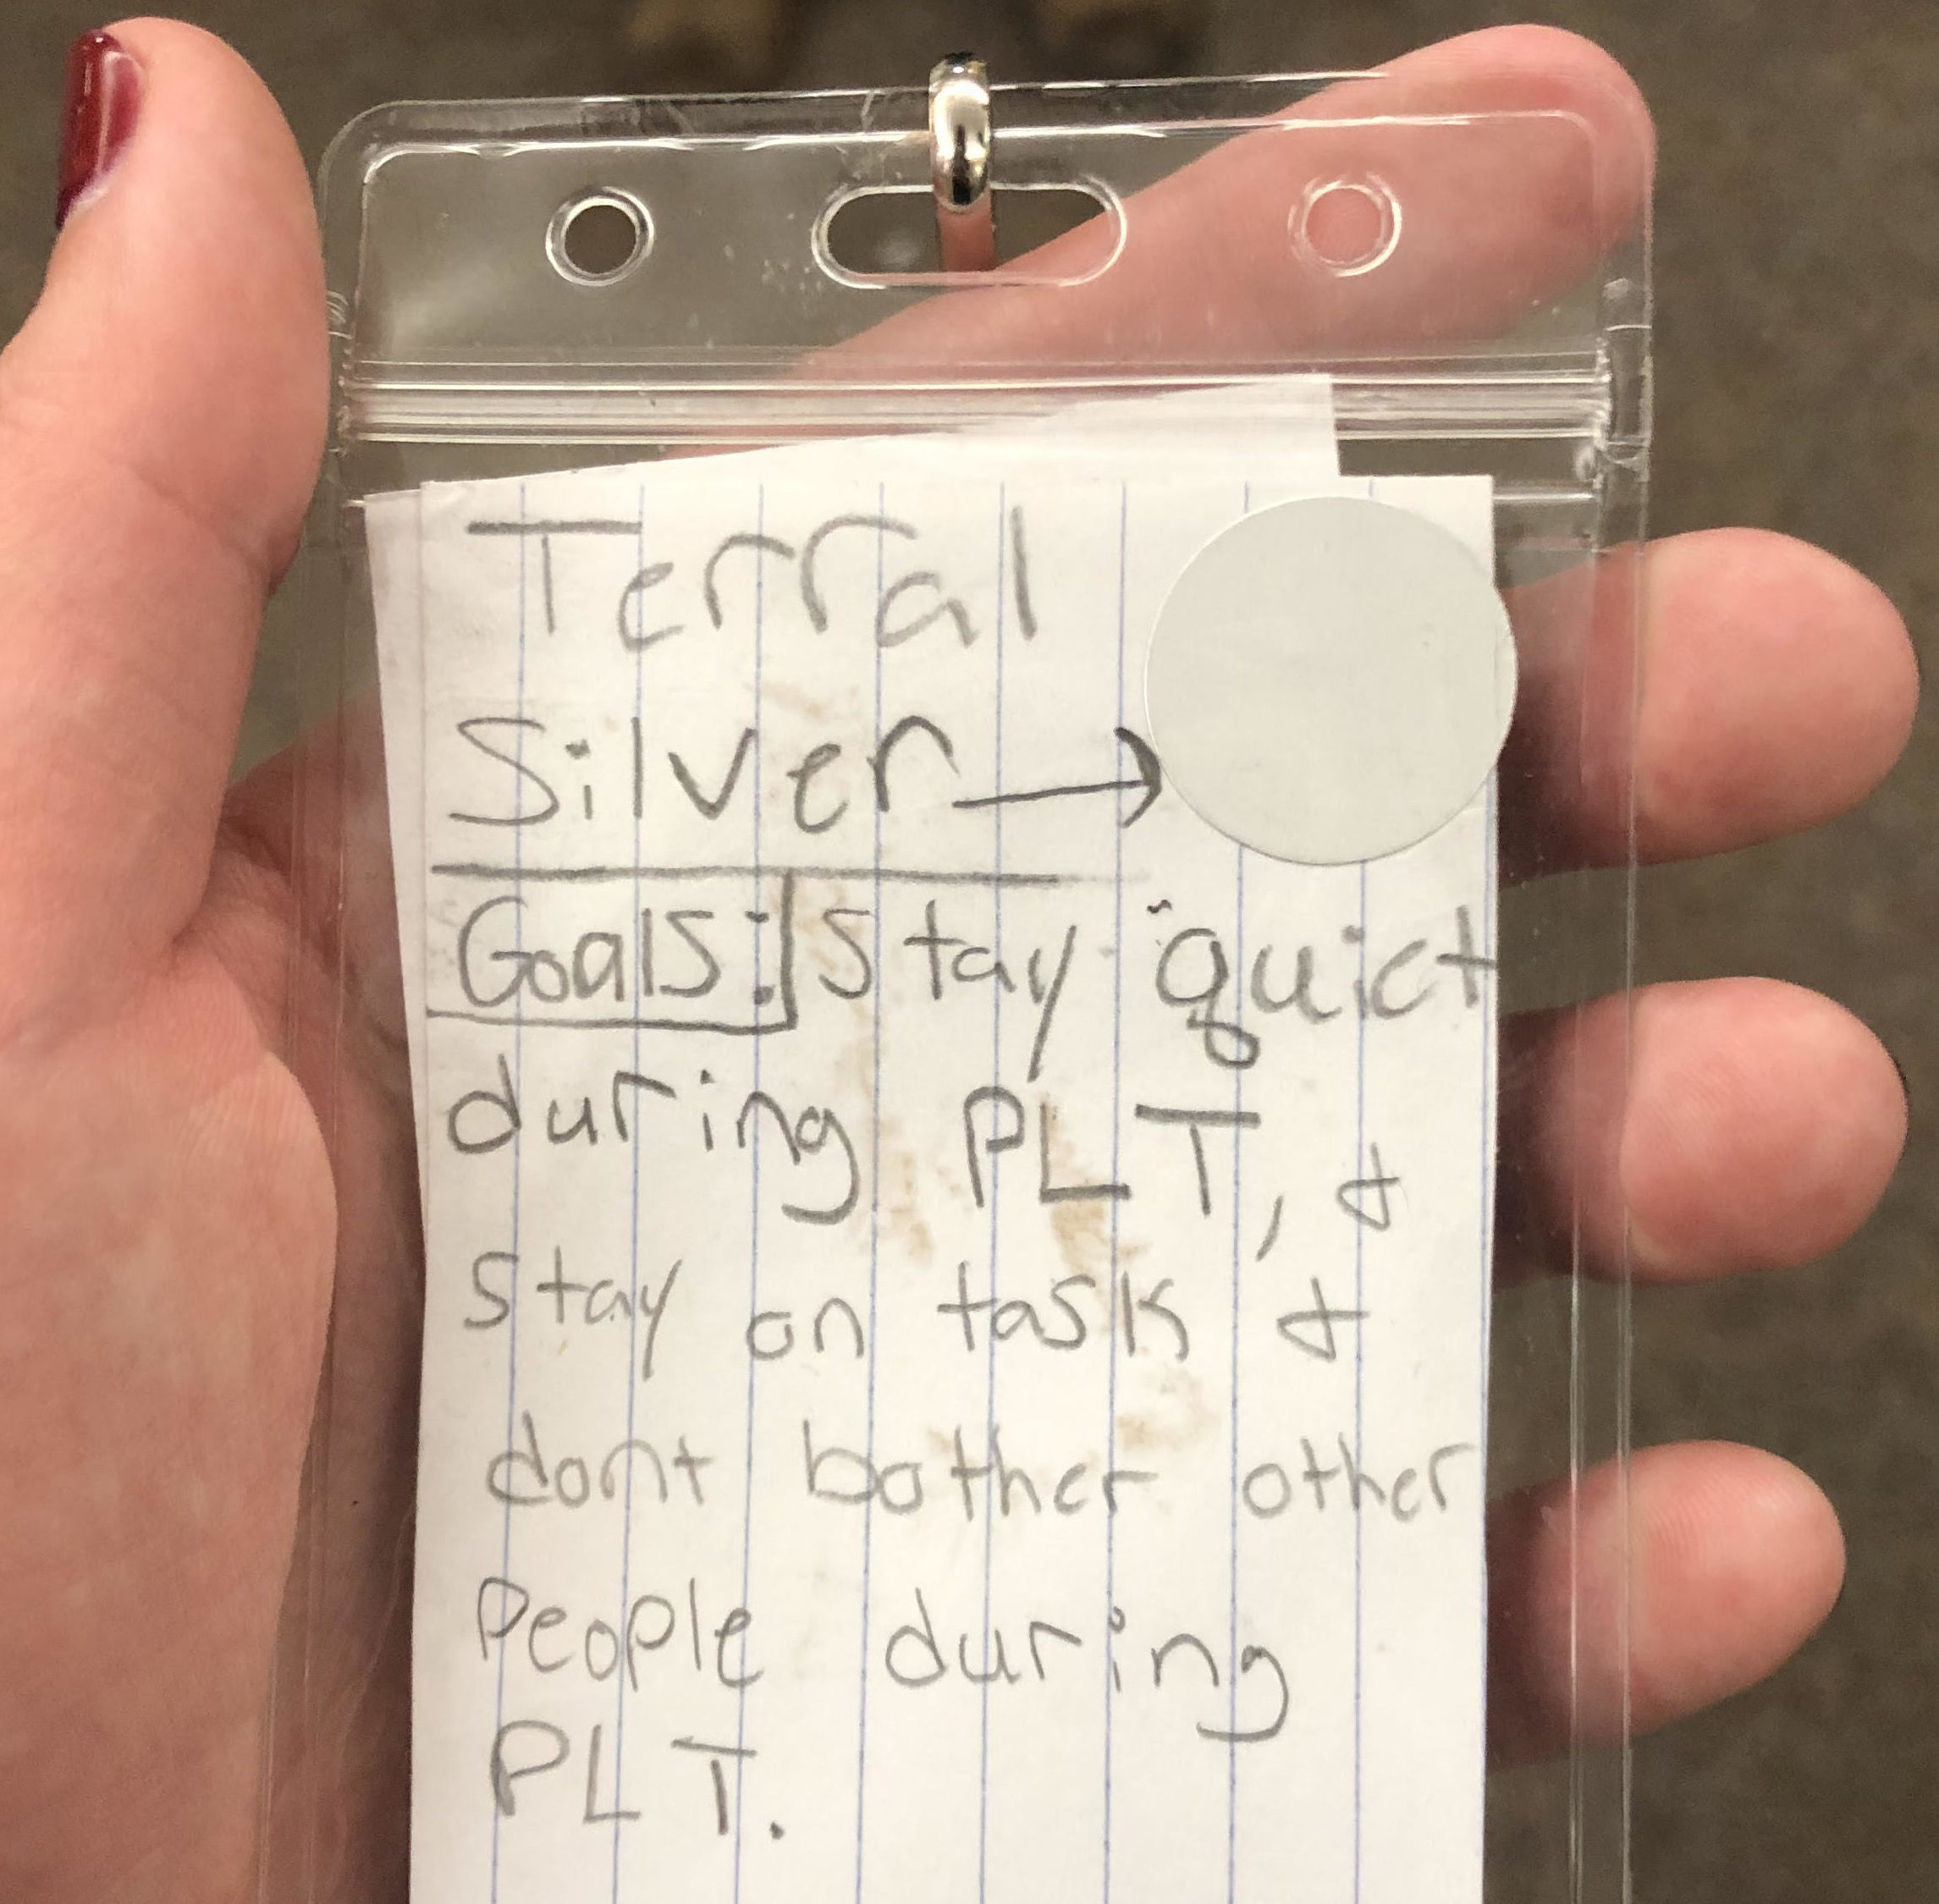 Terral
Silver →
Goals: Stay quiet
during PLT, &
stay on task &
dont bother other
People during
PLT.